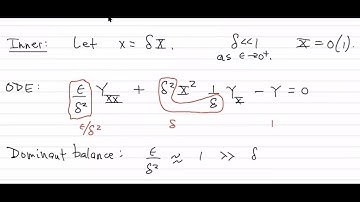 Inner: Let x = δX. δ<<1 as ε→0⁺. X = O(1).
ODE: ε/δ² Y_XX + δ²X² 1/δ Y_X − Y = 0
ε/δ² δ 1
Dominant balance: ε/δ² ≈ 1 >> δ